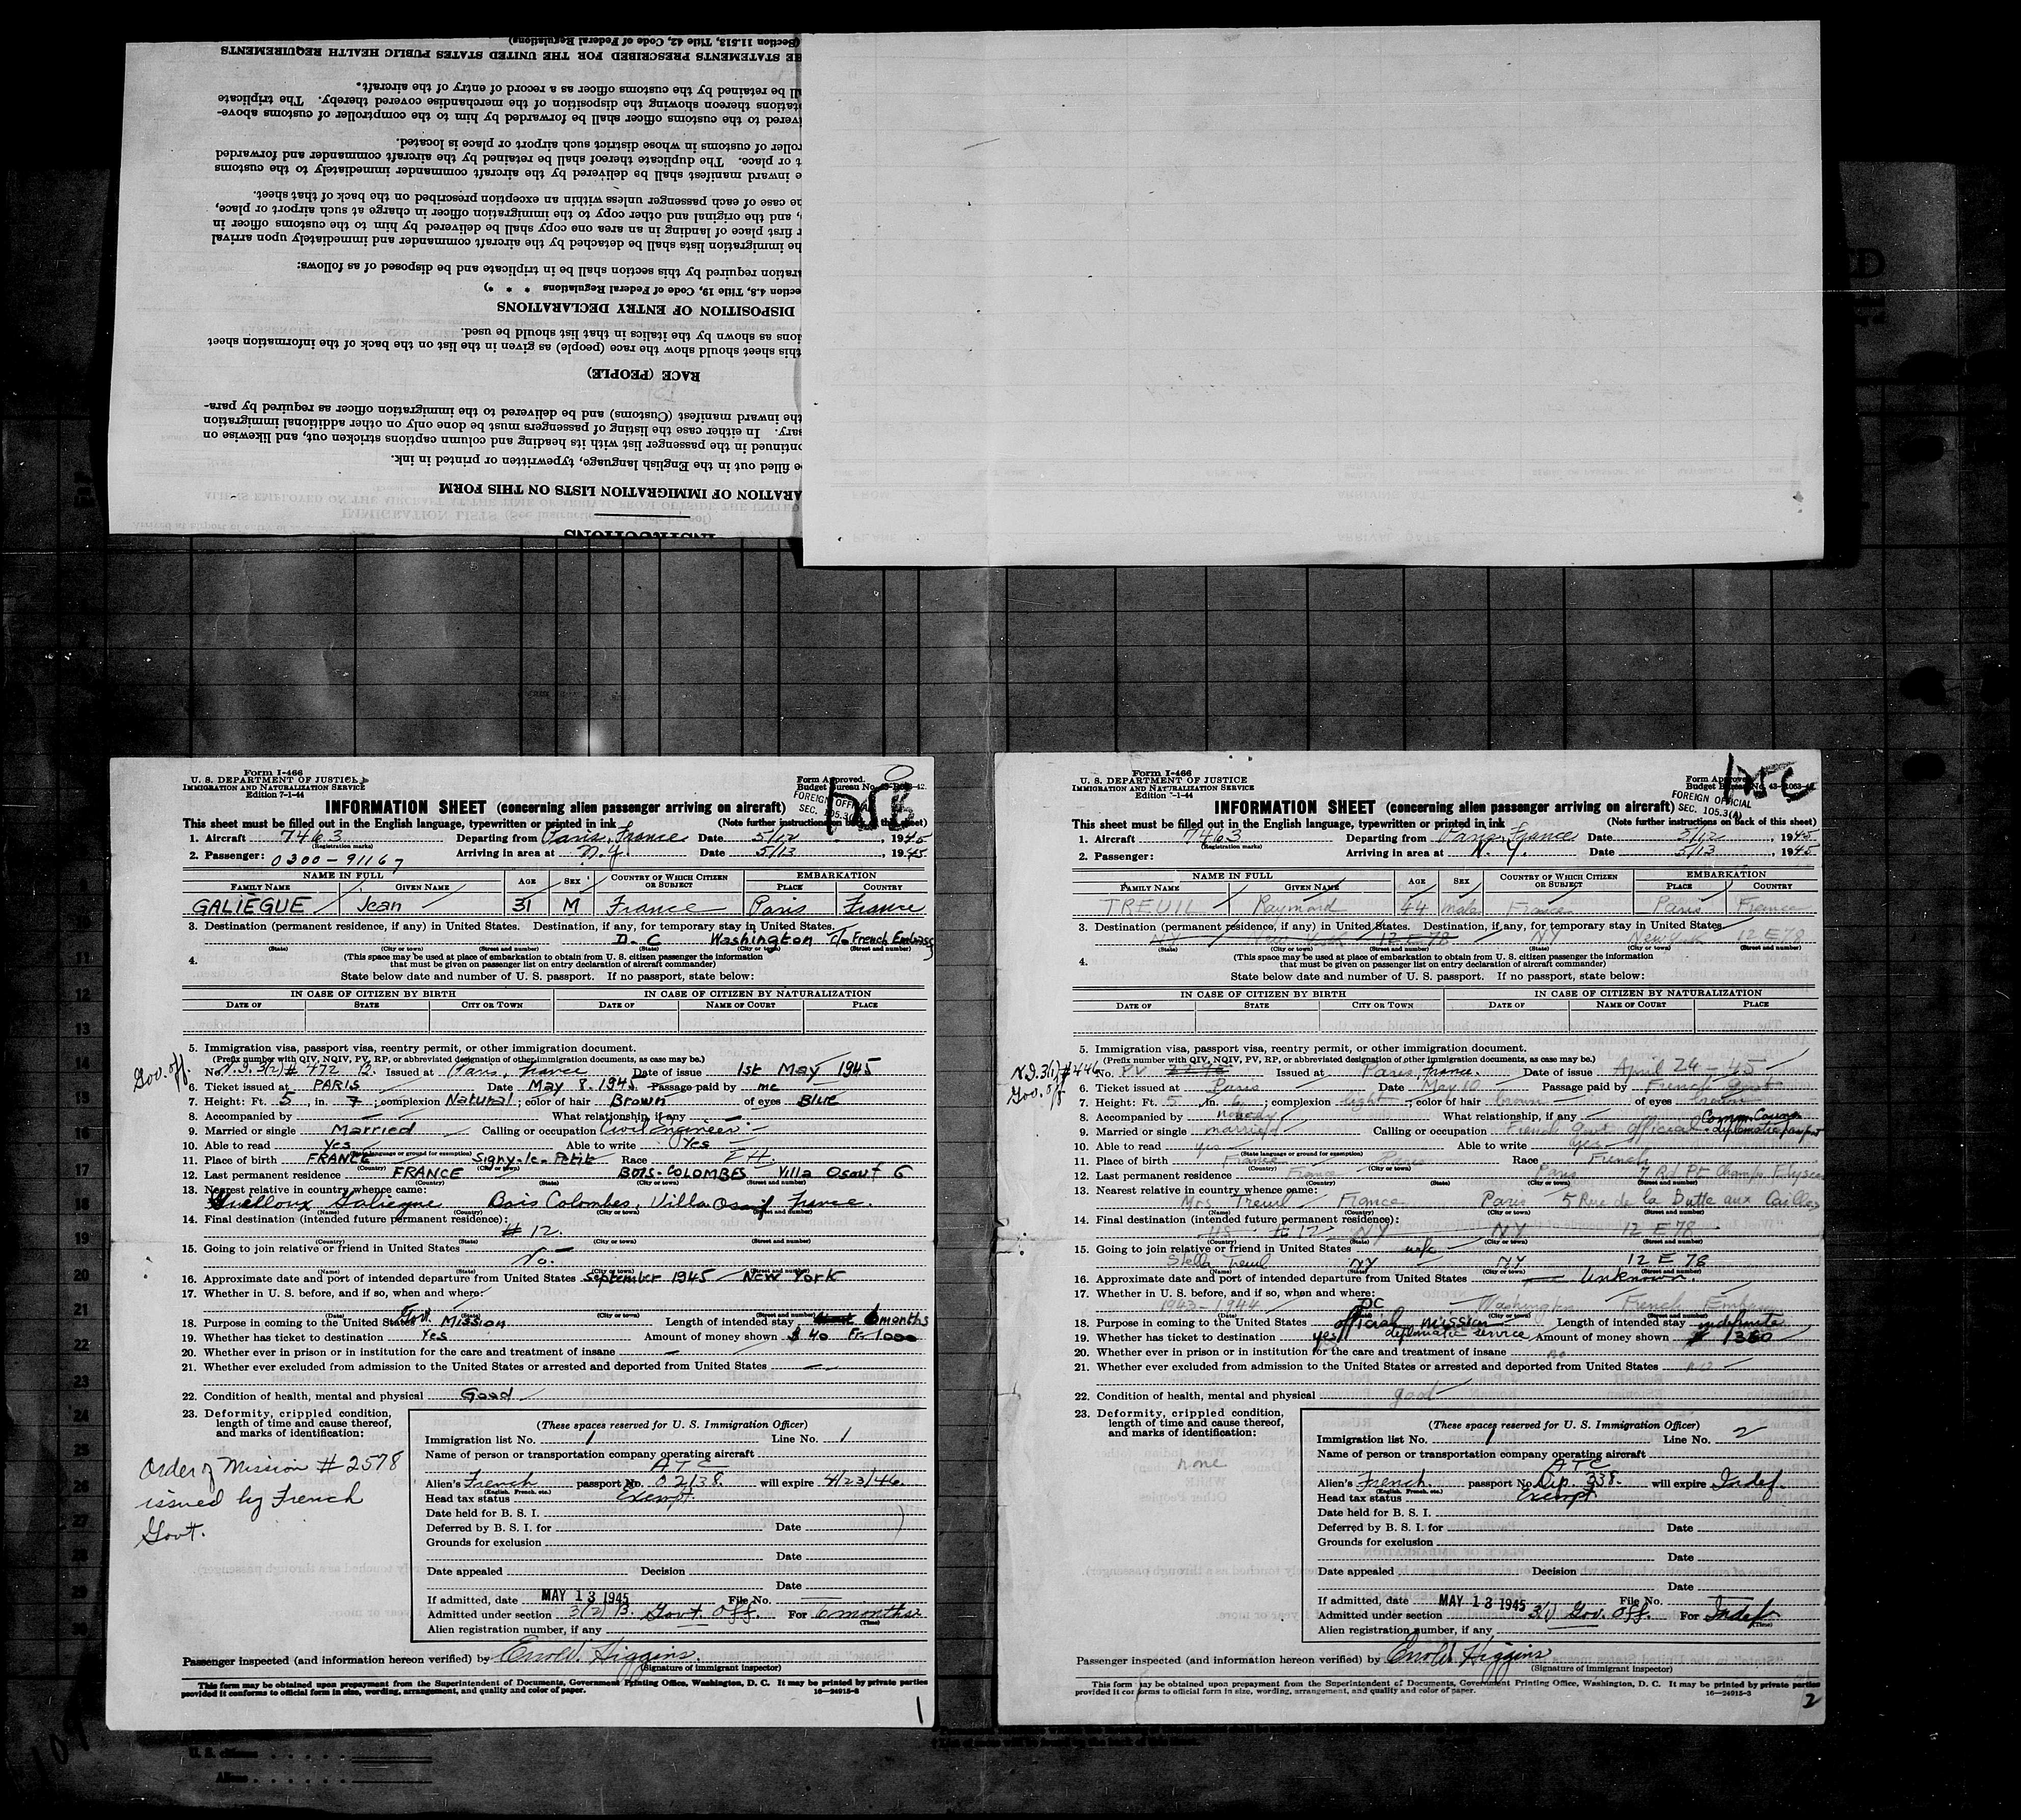 (Section 11.513, Title 42, Code of Federal Regulations)
HE STATEMENTS PRESCRIBED FOR THE UNITED STATES PUBLIC HEALTH REQUIREMENTS
ll be retained by the customs officer as a record of entry of the aircraft.
tations thereon showing the disposition of the merchandise covered thereby. The triplicate
vered to the customs officer shall be forwarded by him to the comptroller of customs above-
roller of customs in whose district such airport or place is located.
t or place. The duplicate thereof shall be retained by the aircraft commander and forwarded
e inward manifest shall be delivered by the aircraft commander immediately to the customs
he case of each passenger unless within an exception prescribed on the back of that sheet.
, and the original and other copy to the immigration officer in charge at such airport or place,
r first place of landing in an area one copy shall be delivered by him to the customs officer in
he immigration lists shall be detached by the aircraft commander and immediately upon arrival
aration required by this section shall be in triplicate and be disposed of as follows:
ection 4.8, Title 19, Code of Federal Regulations * * *)
DISPOSITION OF ENTRY DECLARATIONS
ions as shown by the italics in that list should be used.
this sheet should show the race (people) as given in the list on the back of the information sheet
RACE (PEOPLE)
the inward manifest (Customs) and be delivered to the immigration officer as required by para-
sary. In either case the listing of passengers must be done only on other additional immigration
ontinued in the passenger list with its heading and column captions stricken out, and likewise on
e filled out in the English language, typewritten or printed in ink.
ARATION OF IMMIGRATION LISTS ON THIS FORM
INSTRUCTIONS
Form I-466
U. S. DEPARTMENT OF JUSTICE
IMMIGRATION AND NATURALIZATION SERVICE
Edition 7-1-44
Form Approved.
Budget Bureau No. 43-R063-42.
FOREIGN OFFICIAL
SEC. 105.3(A)
INFORMATION SHEET (concerning alien passenger arriving on aircraft)
This sheet must be filled out in the English language, typewritten or printed in ink (Note further instructions on back of this sheet)
1. Aircraft 7463 Departing from Paris, France Date 5/12, 1945
(Registration marks)
2. Passenger: 0300-91167 Arriving in area at N.Y. Date 5/13, 1945
NAME IN FULL AGE SEX COUNTRY OF WHICH CITIZEN OR SUBJECT EMBARKATION
FAMILY NAME GIVEN NAME PLACE COUNTRY
GALIÈGUE Jean 31 M France Paris France
3. Destination (permanent residence, if any) in United States. Destination, if any, for temporary stay in United States.
D. C Washington c/o French Embassy
(State) (City or town) (Street and number) (State) (City or town) (Street and number)
4. (This space may be used at place of embarkation to obtain from U. S. citizen passenger the information
that must be given on passenger list on entry declaration of aircraft commander)
State below date and number of U. S. passport. If no passport, state below:
IN CASE OF CITIZEN BY BIRTH IN CASE OF CITIZEN BY NATURALIZATION
DATE OF STATE CITY OR TOWN DATE OF NAME OF COURT PLACE
5. Immigration visa, passport visa, reentry permit, or other immigration document.
(Prefix number with QIV, NQIV, PV, RP, or abbreviated designation of other immigration documents, as case may be.)
Gov. off.
No. N.I. 3(2) # 472 Issued at Paris, France Date of issue 1st May 1945
6. Ticket issued at PARIS Date May 8. 1945 Passage paid by me
7. Height: Ft. 5, in. 7; complexion Natural; color of hair Brown of eyes Blue
8. Accompanied by — What relationship, if any —
9. Married or single Married Calling or occupation Civil engineer
10. Able to read Yes Able to write Yes
(State language or ground for exemption)
11. Place of birth FRANCE Signy-le-Petit Race FR.
(Country) (City or town)
12. Last permanent residence FRANCE BOIS-COLOMBES Villa Osouf 6
(Country) (State) (City or town) (Street and number)
13. Nearest relative in country whence came:
Guilloux Galiegue Bois Colombes, Villa Osouf France.
(Name) (City or town) (Street and number)
14. Final destination (intended future permanent residence):
# 12.
(Country) (State) (City or town) (Street and number)
15. Going to join relative or friend in United States No.
(Name) (State) (City or town) (Street and number)
16. Approximate date and port of intended departure from United States September 1945 New York
17. Whether in U. S. before, and if so, when and where:
(Date) (State) (City or town) (Street and number)
18. Purpose in coming to the United States Govt. Mission Length of intended stay 6 months
19. Whether has ticket to destination Yes Amount of money shown $ 40 Fr. 1000
20. Whether ever in prison or in institution for the care and treatment of insane —
21. Whether ever excluded from admission to the United States or arrested and deported from United States —
22. Condition of health, mental and physical Good
23. Deformity, crippled condition,
length of time and cause thereof,
and marks of identification:
Order of Mission # 2578
issued by French
Govt.
(These spaces reserved for U. S. Immigration Officer)
Immigration list No. 1 Line No. 1
Name of person or transportation company operating aircraft
ATC
Alien's French passport No. 02138 will expire 4/23/46
(English, French, etc.)
Head tax status Exempt
Date held for B. S. I.
Deferred by B. S. I. for Date
Grounds for exclusion
Date
Date appealed Decision
Date
If admitted, date MAY 13 1945 File No.
Admitted under section 3(2) B. Govt. Off. For 6 months
(Time)
Alien registration number, if any
Passenger inspected (and information hereon verified) by Errol W. Higgins
(Signature of immigrant inspector)
This form may be obtained upon prepayment from the Superintendent of Documents, Government Printing Office, Washington, D. C. It may be printed by private parties
provided it conforms to official form in size, wording, arrangement, and quality and color of paper. 16—24915-3
1
Form I-466
U. S. DEPARTMENT OF JUSTICE
IMMIGRATION AND NATURALIZATION SERVICE
Edition 7-1-44
Form Approved.
FOREIGN OFFICIAL
SEC. 105.3(A)
INFORMATION SHEET (concerning alien passenger arriving on aircraft)
This sheet must be filled out in the English language, typewritten or printed in ink (Note further instructions on back of this sheet)
1. Aircraft 7463 Departing from Paris, France Date 5/12 1945
(Registration marks)
2. Passenger: Arriving in area at N. Y. Date 5/13, 1945
NAME IN FULL AGE SEX COUNTRY OF WHICH CITIZEN OR SUBJECT EMBARKATION
FAMILY NAME GIVEN NAME PLACE COUNTRY
TREUIL Raymond 44 male France Paris France
3. Destination (permanent residence, if any) in United States. Destination, if any, for temporary stay in United States.
NY New York 12 E 78 NY New York 12 E 78
(State) (City or town) (Street and number) (State) (City or town) (Street and number)
4. (This space may be used at place of embarkation to obtain from U. S. citizen passenger the information
that must be given on passenger list on entry declaration of aircraft commander)
State below date and number of U. S. passport. If no passport, state below:
IN CASE OF CITIZEN BY BIRTH IN CASE OF CITIZEN BY NATURALIZATION
DATE OF STATE CITY OR TOWN DATE OF NAME OF COURT PLACE
5. Immigration visa, passport visa, reentry permit, or other immigration document.
(Prefix number with QIV, NQIV, PV, RP, or abbreviated designation of other immigration documents, as case may be.)
N.I. 3(1) # 446
Gov. off
No. PV Issued at Paris, France. Date of issue April 24-45
6. Ticket issued at Paris Date May 10 Passage paid by French Govt
7. Height: Ft. 5 in. 6; complexion light; color of hair brown of eyes brown
8. Accompanied by nobody What relationship, if any —
9. Married or single married Calling or occupation French Govt official
10. Able to read yes Able to write yes
(State language or ground for exemption)
11. Place of birth France Paris Race French
(Country) (City or town)
12. Last permanent residence France Paris 7 Rd Pt Champs Elysees
(Country) (State) (City or town) (Street and number)
13. Nearest relative in country whence came:
Mrs Treuil France Paris 5 Rue de la Butte aux Cailles
(Name) (City or town) (Street and number)
14. Final destination (intended future permanent residence):
US # 12 NY NY 12 E 78
(Country) (State) (City or town) (Street and number)
15. Going to join relative or friend in United States wife
Stella Treuil NY NY 12 E 78
(Name) (State) (City or town) (Street and number)
16. Approximate date and port of intended departure from United States Unknown.
17. Whether in U. S. before, and if so, when and where:
1943-1944 DC Washington French Embassy
18. Purpose in coming to the United States official mission Length of intended stay indefinite
diplomatic service
19. Whether has ticket to destination yes Amount of money shown $ 1360
20. Whether ever in prison or in institution for the care and treatment of insane no
21. Whether ever excluded from admission to the United States or arrested and deported from United States no
22. Condition of health, mental and physical good
23. Deformity, crippled condition,
length of time and cause thereof,
and marks of identification:
none
(These spaces reserved for U. S. Immigration Officer)
Immigration list No. 1 Line No. 2
Name of person or transportation company operating aircraft
ATC
Alien's French passport No. Dip. 338. will expire Indef.
(English, French, etc.)
Head tax status Exempt
Date held for B. S. I.
Deferred by B. S. I. for Date
Grounds for exclusion
Date
Date appealed Decision
Date
If admitted, date MAY 13 1945 File No.
Admitted under section 3(1) Gov. Off. For Indef
(Time)
Alien registration number, if any
Passenger inspected (and information hereon verified) by Errol W. Higgins
(Signature of immigrant inspector)
This form may be obtained upon prepayment from the Superintendent of Documents, Government Printing Office, Washington, D. C. It may be printed by private parties
provided it conforms to official form in size, wording, arrangement, and quality and color of paper. 16—24915-3
2
U. S. citizens
Aliens